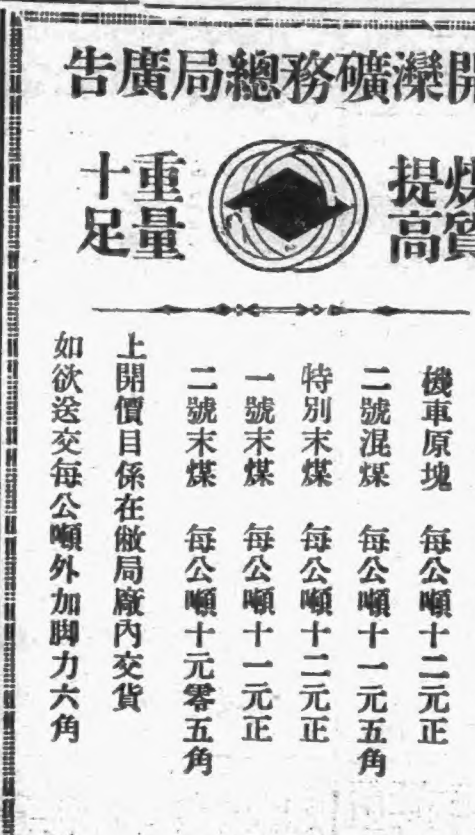 開灤礦務總局廣告
煤質
提高
重量
十足
機車原塊 每公噸十二元正
二號混煤 每公噸十一元五角
特別末煤 每公噸十二元正
一號末煤 每公噸十一元正
二號末煤 每公噸十元零五角
上開價目係在敝局廠內交貨
如欲送交每公噸外加脚力六角